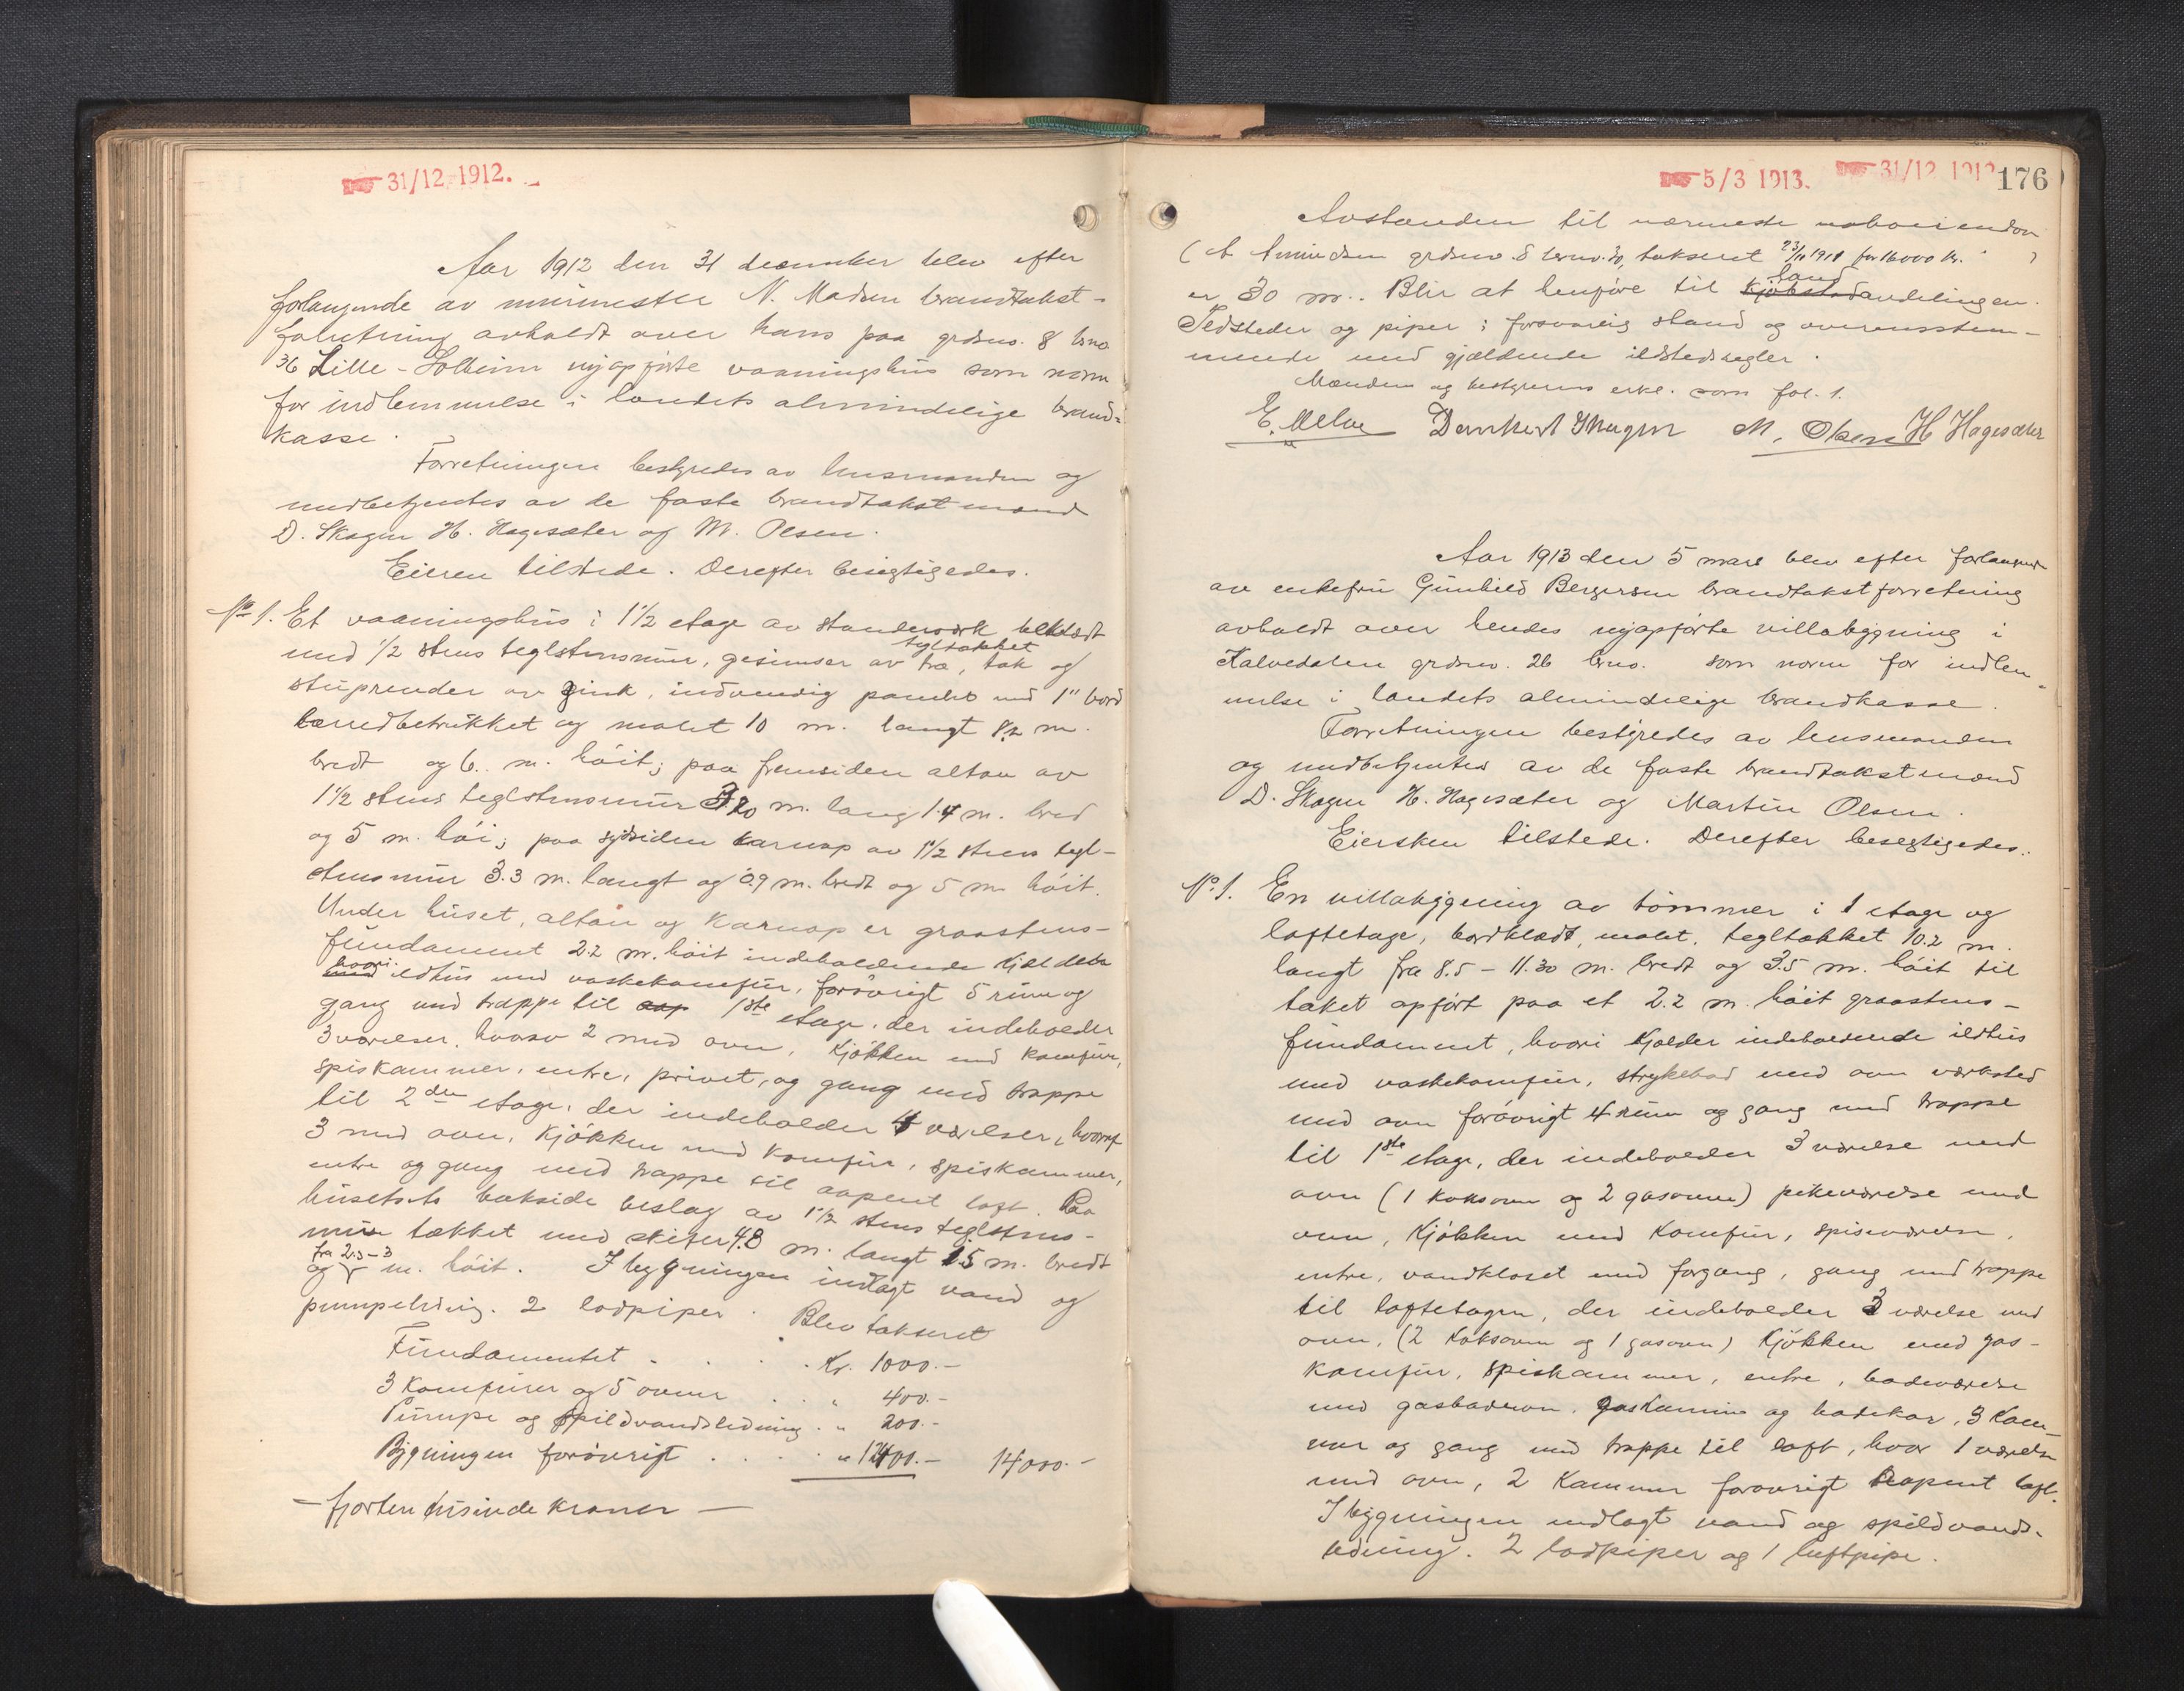 31/12 1912.
Aar 1912 den 31 december blev efter
forlangende av murmester N. Madsen brandtakst-
forretning avholdt over hans paa grdsno. 8 brno
36 Lille-Solheim nyopførte vaaningshus som norm
for indlemmelse i landets almindelige brand-
kasse.
Forretningen bestyredes av lensmanden og
medbetjentes av de faste brandtakstmænd
D. Skagen H. Hagesæter og M. Olsen.
Eieren tilstede. Derefter besigtigedes.
No 1. Et vaaningshus i 1 1/2 etage av standerværk beklædt
med 1/2 stens teglstensmur, gesimser av træ, tegltækket tak og
stuprender av zink, indvendig panelt med 1" bord
lærredbetrukket og malet 10 m. langt 8.2 m.
bredt og 6. m. höit; paa fremsiden altan av
1 1/2 stens teglstensmur 3.20 m. lang 1.4 m. bred
og 5 m. höi; paa sydsiden karnap av 1 1/2 stens tegl-
stensmur 3.3 m. langt og 0.9 m. bredt og 5 m höit.
Under huset, altan og karnap er graastens-
fundament 2.2 m. höit indeholdende kjælder
hvori ildhus med vaskekomfur, forövrigt 5 rum og
gang med trappe til 1ste etage, der indeholder
3 værelser, hvorav 2 med ovn, kjökken med komfur,
spiskammer, entre, privet, og gang med trappe
til 2den etage, der indeholder 4 værelser, hvoraf
3 med ovn, kjökken med komfur, spiskammer,
entre og gang med trappe til aapent loft. Paa
husets bakside beslag av 1 1/2 stens teglstens-
mur tækket med skifer 4.8 m. langt 1.5 m. bredt
og fra 2.5-3 m. höit. I bygningen indlagt vand og
pumpeledning. 2 lodpiper. Blev takseret
Fundamentet . . . . Kr. 1000.-
3 komfurer og 5 ovner . . " 400.-
Pumpe og spildvandsledning . " 200.-
Bygningen forövrigt . . . . " 12400.- 14000.-
- fjorten tusinde kroner -
5/3 1913. 31/12 1912 176
Avstanden til nærmeste naboeiendom
(A. Amundsen grdsno. 8 brno. 30, takseret 23/10 1911 for 16000 kr. )
er 30 m.. Blir at henføre til kjøbstad land avdelingen.
Ildsteder og piper i forsvarlig stand og overensstem-
mende med gjældende ildstedsregler.
Mændens og bestyrerens erkl. som fol. 1.
E. Melve Dankert Skagen M. Olsen H Hagesæter
Aar 1913 den 5 mars blev efter forlangende
av enkefru Gunhild Bergersen brandtakstforretning
avholdt over hendes nyopførte villabygning i
Kalvedalen grdsno. 26 brno. som norm for indlem-
melse i landets almindelige brandkasse.
Forretningen bestyredes av lensmanden
og medbetjentes av de faste brandtakstmænd
D. Skagen H. Hagesæter og Martin Olsen.
Eiersken tilstede. Derefter besigtigedes.
No. 1. En villabygning av tömmer i 1 etage og
loftetage, bordklædt, malet, tegltækket 10.2 m.
langt fra 8.5 - 11.30 m. bredt og 3.5 m. höit til
taket opfört paa et 2.2 m. höit graastens-
fundament, hvori kjælder indeholdende ildhus
med vaskekomfur, strykebod med ovn værksted
med ovn forövrigt 4 rum og gang med trappe
til 1ste etage, der indeholder 3 værelse med
ovn (1 koksovn og 2 gasovne) pikeværelse med
ovn, kjökken med komfur, spiseværelse,
entre, vandkloset med forgang, gang med trappe
til loftetagen, der indeholder 3 værelse med
ovn, (2 koksovn og 1 gasovn) kjökken med gas-
komfur, spiskammer, entre, badeværelse
med gasbadeovn, gaskamin og badekar, 3 kam-
mer og gang med trappe til loft, hvor 1 værelse
med ovn, 2 kammer forövrigt aapent loft.
I bygningen indlagt vand og spildvands-
ledning. 2 lodpiper og 1 luftpipe.